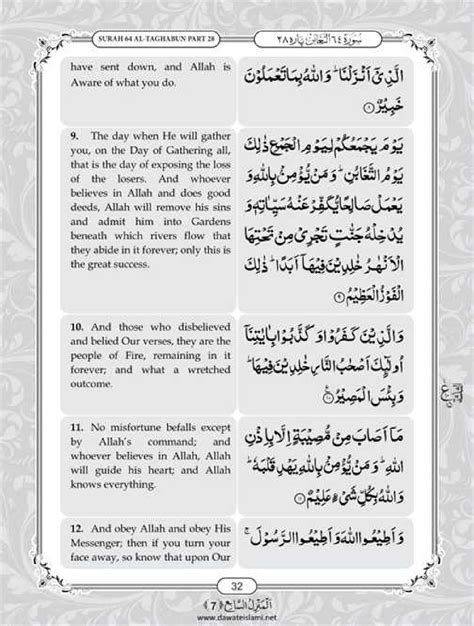 SURAH 64 AL-TAGHABUN PART 28
سُورَة ٦٤ التَّغَابُن پارہ ٢٨
have sent down, and Allah is
Aware of what you do.
الَّذِیْۤ اَنْزَلْنَا ؕ وَاللّٰهُ بِمَا تَعْمَلُوْنَ
خَبِیْرٌ ﴿٨﴾
9. The day when He will gather
you, on the Day of Gathering all,
that is the day of exposing the loss
of the losers. And whoever
believes in Allah and does good
deeds, Allah will remove his sins
and admit him into Gardens
beneath which rivers flow that
they abide in it forever; only this is
the great success.
یَوْمَ یَجْمَعُكُمْ لِیَوْمِ الْجَمْعِ ذٰلِكَ
یَوْمُ التَّغَابُنِ ؕ وَمَنْ یُّؤْمِنْۢ بِاللّٰهِ وَ
یَعْمَلْ صَالِحًا یُّكَفِّرْ عَنْهُ سَیِّاٰتِهٖ وَ
یُدْخِلْهُ جَنّٰتٍ تَجْرِیْ مِنْ تَحْتِهَا
الْاَنْهٰرُ خٰلِدِیْنَ فِیْهَاۤ اَبَدًا ؕ ذٰلِكَ
الْفَوْزُ الْعَظِیْمُ ﴿٩﴾
10. And those who disbelieved
and belied Our verses, they are the
people of Fire, remaining in it
forever; and what a wretched
outcome.
وَالَّذِیْنَ كَفَرُوْا وَ كَذَّبُوْا بِاٰیٰتِنَاۤ
اُولٰٓىِٕكَ اَصْحٰبُ النَّارِ خٰلِدِیْنَ فِیْهَا ؕ
وَبِئْسَ الْمَصِیْرُ ﴿١٠﴾
11. No misfortune befalls except
by Allah's command; and
whoever believes in Allah, Allah
will guide his heart; and Allah
knows everything.
مَاۤ اَصَابَ مِنْ مُّصِیْبَةٍ اِلَّا بِاِذْنِ
اللّٰهِ ؕ وَ مَنْ یُّؤْمِنْۢ بِاللّٰهِ یَهْدِ قَلْبَهٗ ؕ
وَاللّٰهُ بِكُلِّ شَیْءٍ عَلِیْمٌ ﴿١١﴾
12. And obey Allah and obey His
Messenger; then if you turn your
face away, so know that upon Our
وَ اَطِیْعُوا اللّٰهَ وَ اَطِیْعُوا الرَّسُوْلَ ۚ
32
اَلْمَنْزِلُ السَّابِع ﴿7﴾
www.dawateislami.net